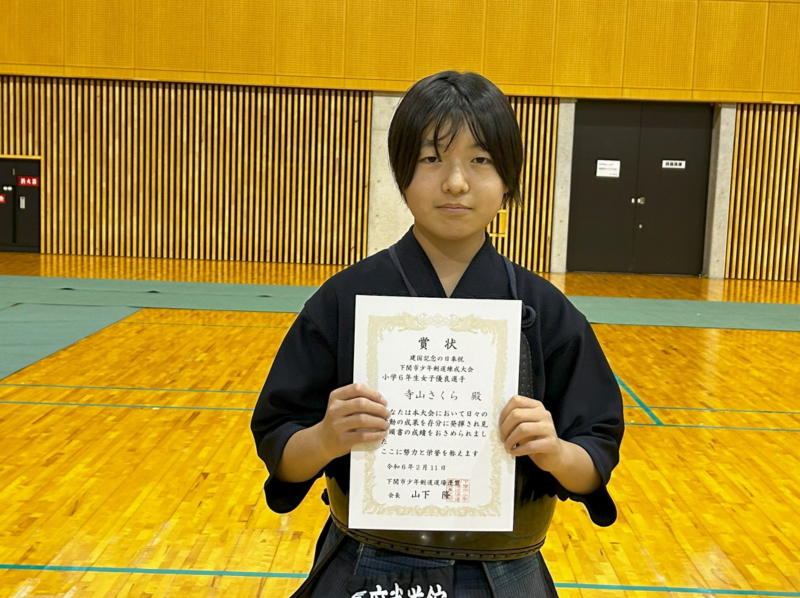 賞状
建国記念の日奉祝
下関市少年剣道錬成大会
小学6年生女子優良選手
寺山さくら 殿
なたは本大会において日々の
動の成果を存分に発揮され見
頭書の成績をおさめられまし
た
ここに努力と栄誉を称えます
令和6年2月11日
下関市少年剣道道場連盟
会長 山下 隆
消火栓